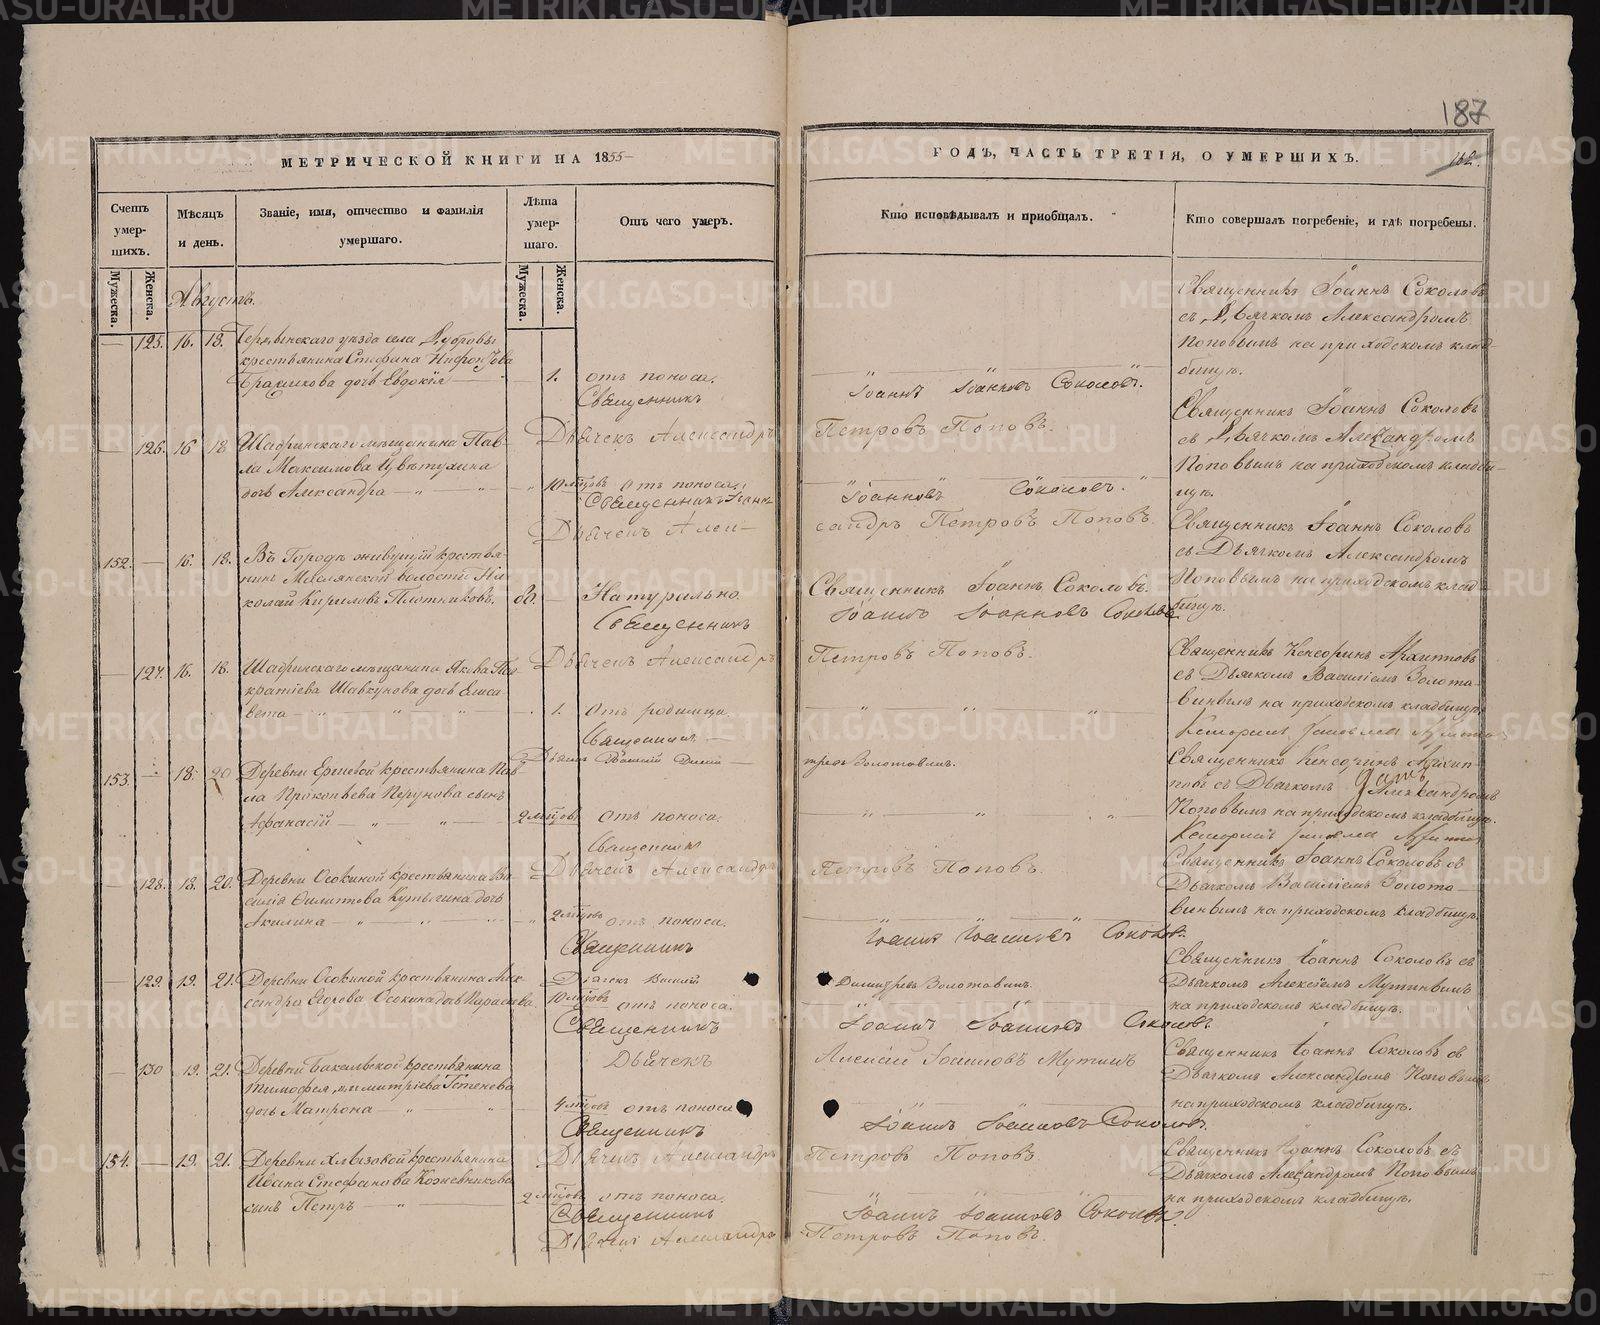 187
МЕТРИЧЕСКОЙ КНИГИ НА 1855
ГОДЪ, ЧАСТЬ ТРЕТІЯ, О УМЕРШИХЪ.
162.
Счетъ умер-шихъ.
Мужеска.
Женска.
Мѣсяцъ и день.
Званіе, имя, отчество и фамилія умершаго.
Лѣта умер-шаго.
Мужеска.
Женска.
Отъ чего умеръ.
Кто исповѣдывалъ и пріобщалъ.
Кто совершалъ погребеніе, и гдѣ погребены.
Августъ.
125. 16. 18.
уѣзда села
крестьянина Стефана
дочь Евдокія
1. отъ поноса.
Священникъ Іоаннъ Соколовъ
съ Дьячкомъ Александромъ
Поповымъ на приходскомъ клад-
бищѣ.
Священникъ
Іоаннъ Іоанновъ Соколовъ.
Дьячекъ Александръ
Петровъ Поповъ.
126. 16 18
Шадринскаго мѣщанина Пав-
ла Максимова Цвѣтухина
дочь Александра
10 мѣсяцовъ отъ поноса.
Священникъ Іоаннъ Соколовъ
съ Дьячкомъ Александромъ
Поповымъ на приходскомъ кладби-
щѣ.
Священникъ Іоаннъ
Іоанновъ Соколовъ.
Дьячекъ Алек-
сандръ Петровъ Поповъ.
152. 16. 18.
Въ Городѣ живущій крестья-
нинъ волости Ни-
колай Кириловъ Плотниковъ.
80. Натурально.
Священникъ Іоаннъ Соколовъ.
Священникъ Іоаннъ Соколовъ
съ Дьячкомъ Александромъ
Поповымъ на приходскомъ клад-
бищѣ.
Священникъ
Іоаннъ Іоанновъ Соколовъ
Дьячекъ Александръ
Петровъ Поповъ.
127. 16. 18.
Шадринскаго мѣщанина Якова Пан-
кратіева Шавкунова дочь Елиса-
вета
1. отъ родимца.
Священникъ Кенсоринъ Архиповъ
съ Дьячкомъ Василіемъ Золота-
винымъ на приходскомъ кладбищѣ.
Священникъ
Дьячекъ Василій Дими-
тревъ Золотавинъ.
153. 18. 20
Деревни крестьянина Пав-
ла Прокопьева Перунова сынъ
Афанасій
2 мѣсяцовъ отъ поноса.
Священникъ Кенсоринъ Архип-
повъ съ Дьячкомъ Александромъ
Поповымъ на приходскомъ кладбищѣ.
Священникъ
Дьячекъ Александръ
Петровъ Поповъ.
128. 18. 20.
Деревни Осокиной крестьянина Ва-
силія Филипова Кутыгина дочь
Акилина
2 мѣсяцовъ отъ поноса.
Священникъ Іоаннъ Соколовъ съ
Дьячкомъ Василіемъ Золота-
винымъ на приходскомъ кладбищѣ.
Священникъ
Іоаннъ Іоанновъ Соколовъ.
Дьячекъ Василій
Димитревъ Золотавинъ.
129. 19. 21.
Деревни Осокиной крестьянина Алек-
сандра Егорова Осокина дочь
10 мѣсяцовъ отъ поноса.
Священникъ Іоаннъ Соколовъ съ
Дьячкомъ Алексіемъ Мутинымъ
на приходскомъ кладбищѣ.
Священникъ
Іоаннъ Іоанновъ Соколовъ.
Дьячекъ
Алексій Іоанновъ Мутинъ
130 19. 21.
Деревни Бакальской крестьянина
Тимофея Димитріева
дочь Матрона
4 мѣсяцовъ отъ поноса
Священникъ Іоаннъ Соколовъ съ
Дьячкомъ Александромъ Поповымъ
на приходскомъ кладбищѣ.
Священникъ
Іоаннъ Іоанновъ Соколовъ.
Дьячекъ Александръ
Петровъ Поповъ.
154. 19. 21.
Деревни Хлызовой крестьянина
Ивана Стефанова Кожевникова
сынъ Петръ
2 мѣсяцовъ отъ поноса.
Священникъ Іоаннъ Соколовъ съ
Дьячкомъ Александромъ Поповымъ
на приходскомъ кладбищѣ.
Священникъ
Іоаннъ Іоанновъ Соколовъ.
Дьячекъ Александръ
Петровъ Поповъ.
METRIKI.GASO-URAL.RU